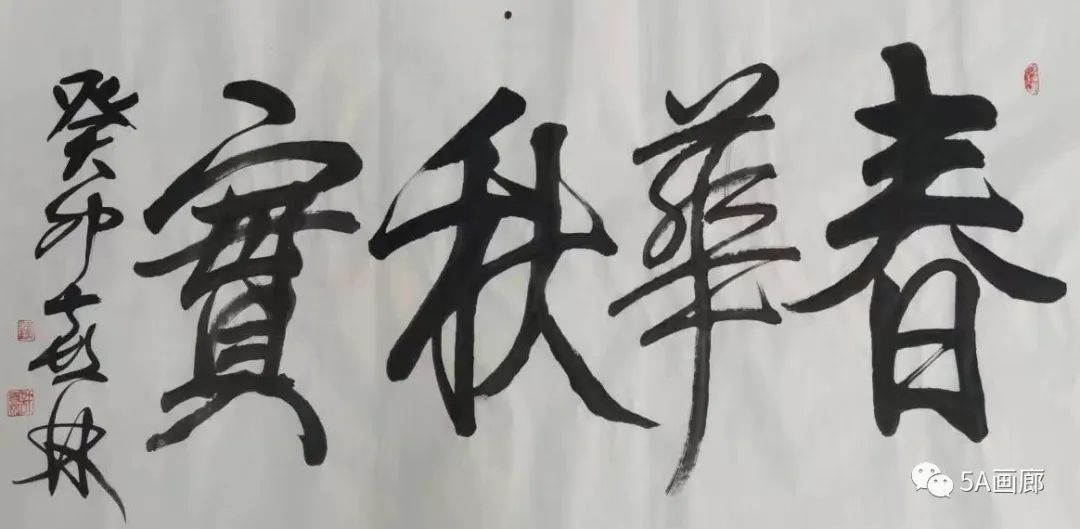 春華秋實
癸卯
5A画廊